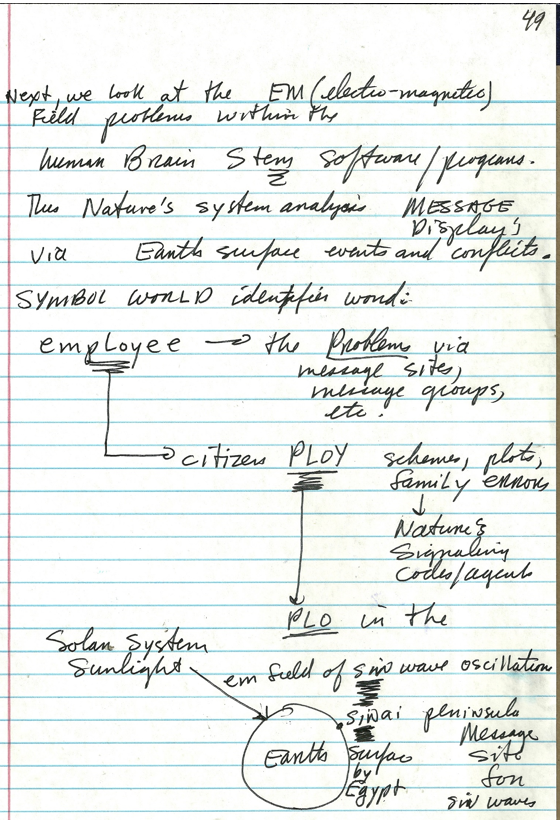 49
Next, we look at the EM (electro-magnetic)
Field problems within the
human Brain Stem software/programs.
This Nature's system analysis MESSAGE
Display's
via Earth surface events and conflicts.
SYMBOL WORLD identifies word:
employee → the Problems via
message sites,
message groups,
etc.
citizens PLOY schemes, plots,
family errors
Nature's
Signaling
codes/agents
PLO in the
Solar System
Sunlight
em field of sin wave oscillation
Sinai peninsula
Message
Earth Surface site
by for
Egypt sin waves